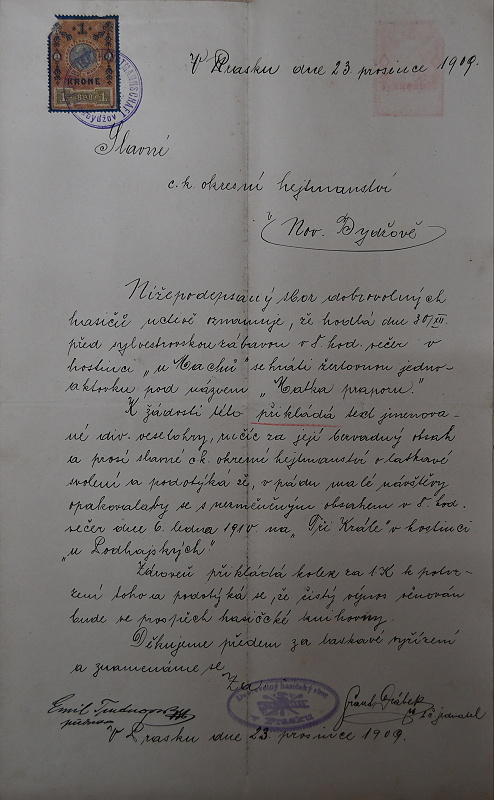 1
KRONE
1909
V Prasku dne 23. prosince 1909.
Slavné
c. k. okresní hejtmanství
v Nov. Bydžově
Nížepodepsaný sbor dobrovolných
hasičů uctivě oznamuje, že hodlá dne 30/XII.
před sylvestrovskou zábavou v 8 hod. večer v
hostinci „u Machů" sehráti žertovnou jedno-
aktovku pod názvem „Matka praporu."
K žádosti této přikládá text jmenova-
né div. veselohry, ručíc za její bezvadný obsah
a prosí slavné c.k. okresní hejtmanství o laskavé
svolení a podotýká že, v pádu malé návštěvy
opakovalaby se s nezměněným obsahem v 8. hod.
večer dne 6. ledna 1910 na „Tři Krále" v hostinci
„u Podhajských"
Zároveň přikládá kolek za 1K k potvr-
zení toho a podotýká se, že čistý výnos věnován
bude ve prospěch hasičské knihovny.
Děkujeme předem za laskavé vyřízení
a znamenáme se
Emil
Frant. Drátek
jednatel
V Prasku dne 23. prosince 1909.